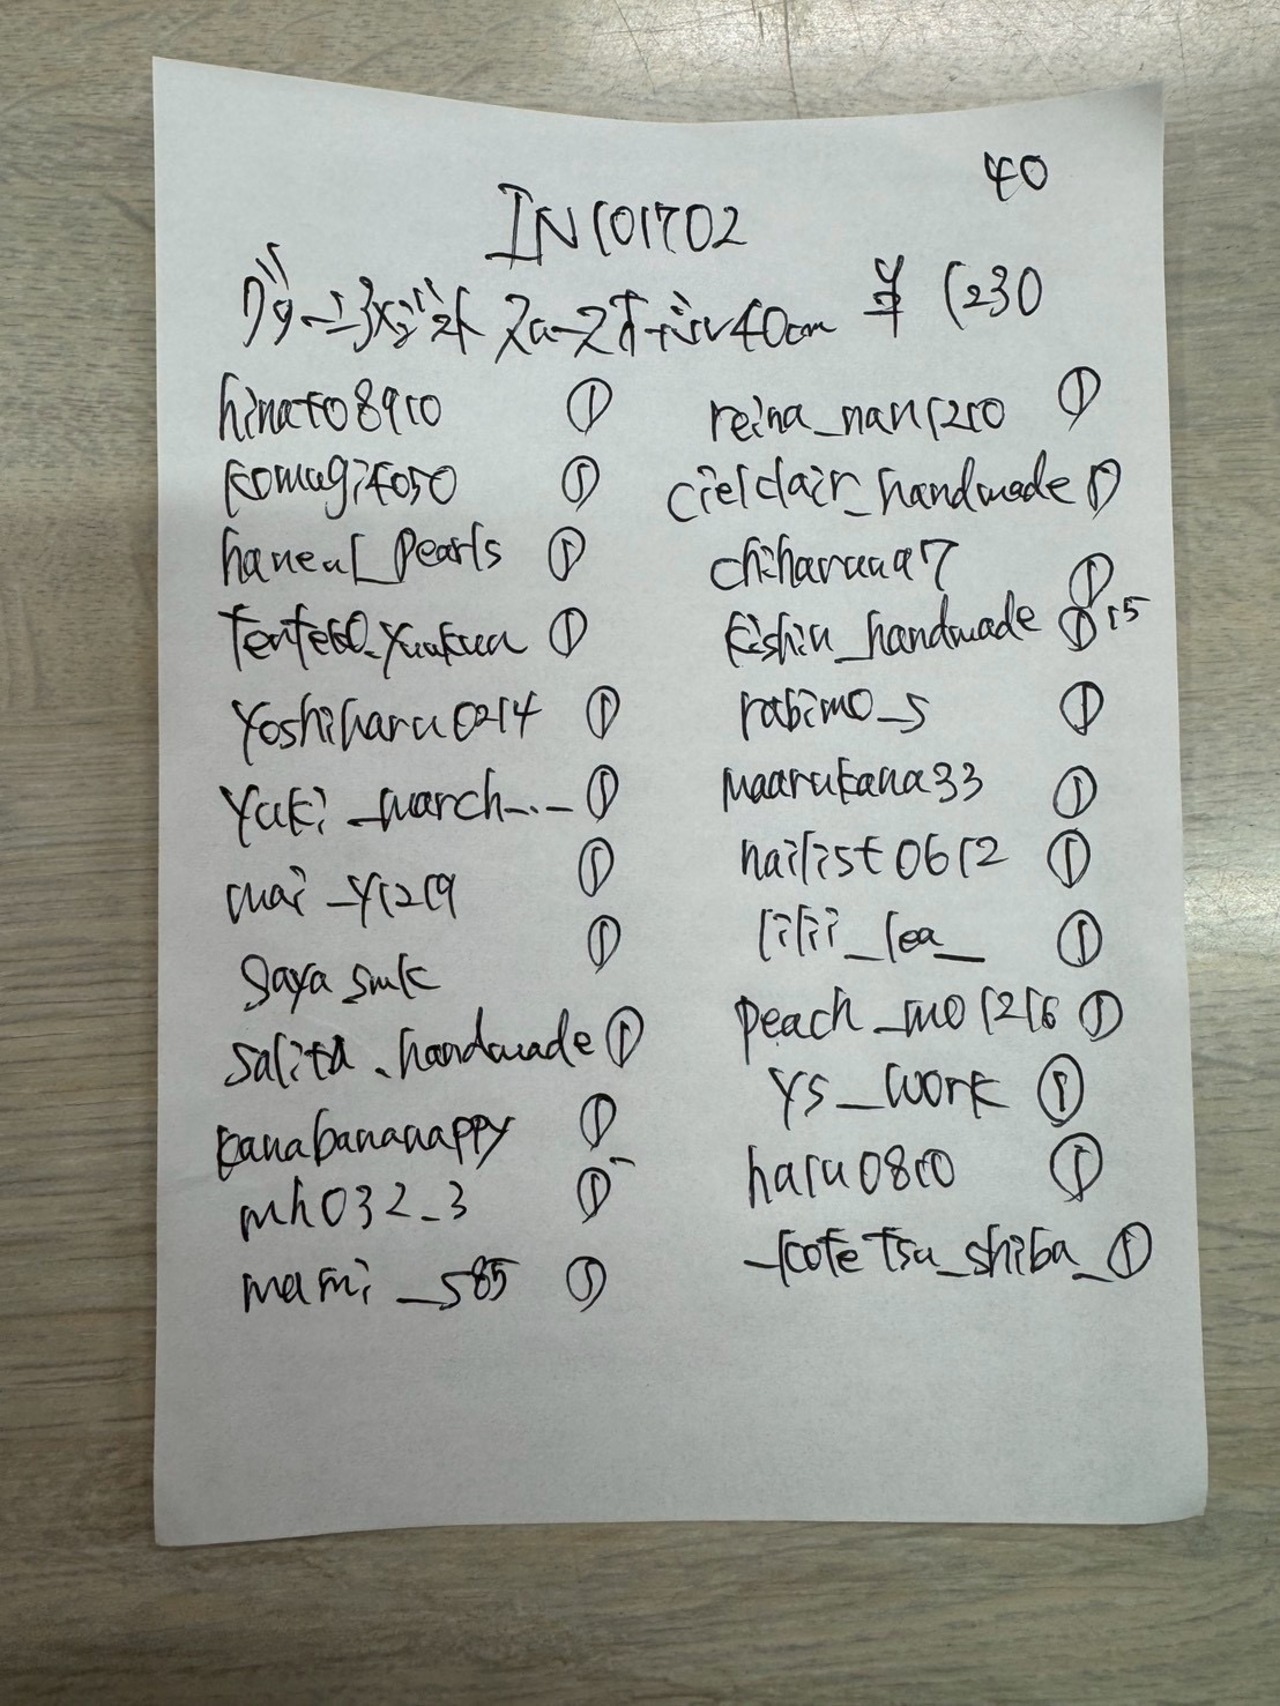 40
IN101702
¥ 1230
hinato8910 ①
komugi4050 ①
haneul_pearls ①
yoshiharu0214 ①
yuki_march_._ ①
mai_y1219 ①
sayasmk ①
salita.handmade ①
kanabananappy ①
mh032_3 ①
mami_s85 ①
reina_nan1210 ①
cielclair_handmade ①
chiharuua7 ①
kishiu_handmade ① 15
rabimo_s ①
maarukana33 ①
nailist0612 ①
lilii_lea_ ①
peach_mo1216 ①
ys_work ①
haru0810 ①
_kotetsu_shiba_ ①